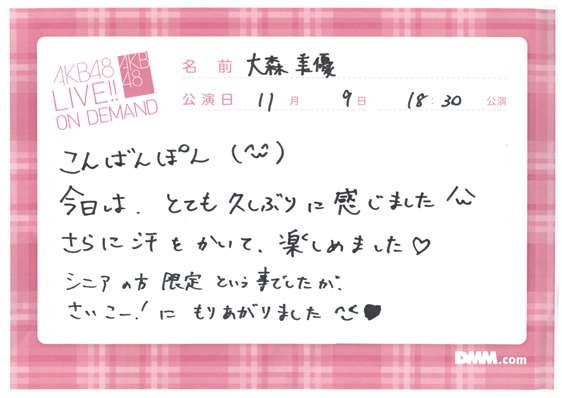 AKB48
LIVE!!
ON DEMAND
AKB
48
名 前 大森美優
公演日 11月 9日 18:30 公演
こんばんぽん (^ω^)
今日は、とても久しぶりに感じました^ω^
さらに汗をかいて、楽しめました♡
シニアの方限定という事でしたが、
さいこー!にもりあがりました^ω^♥
DMM.com